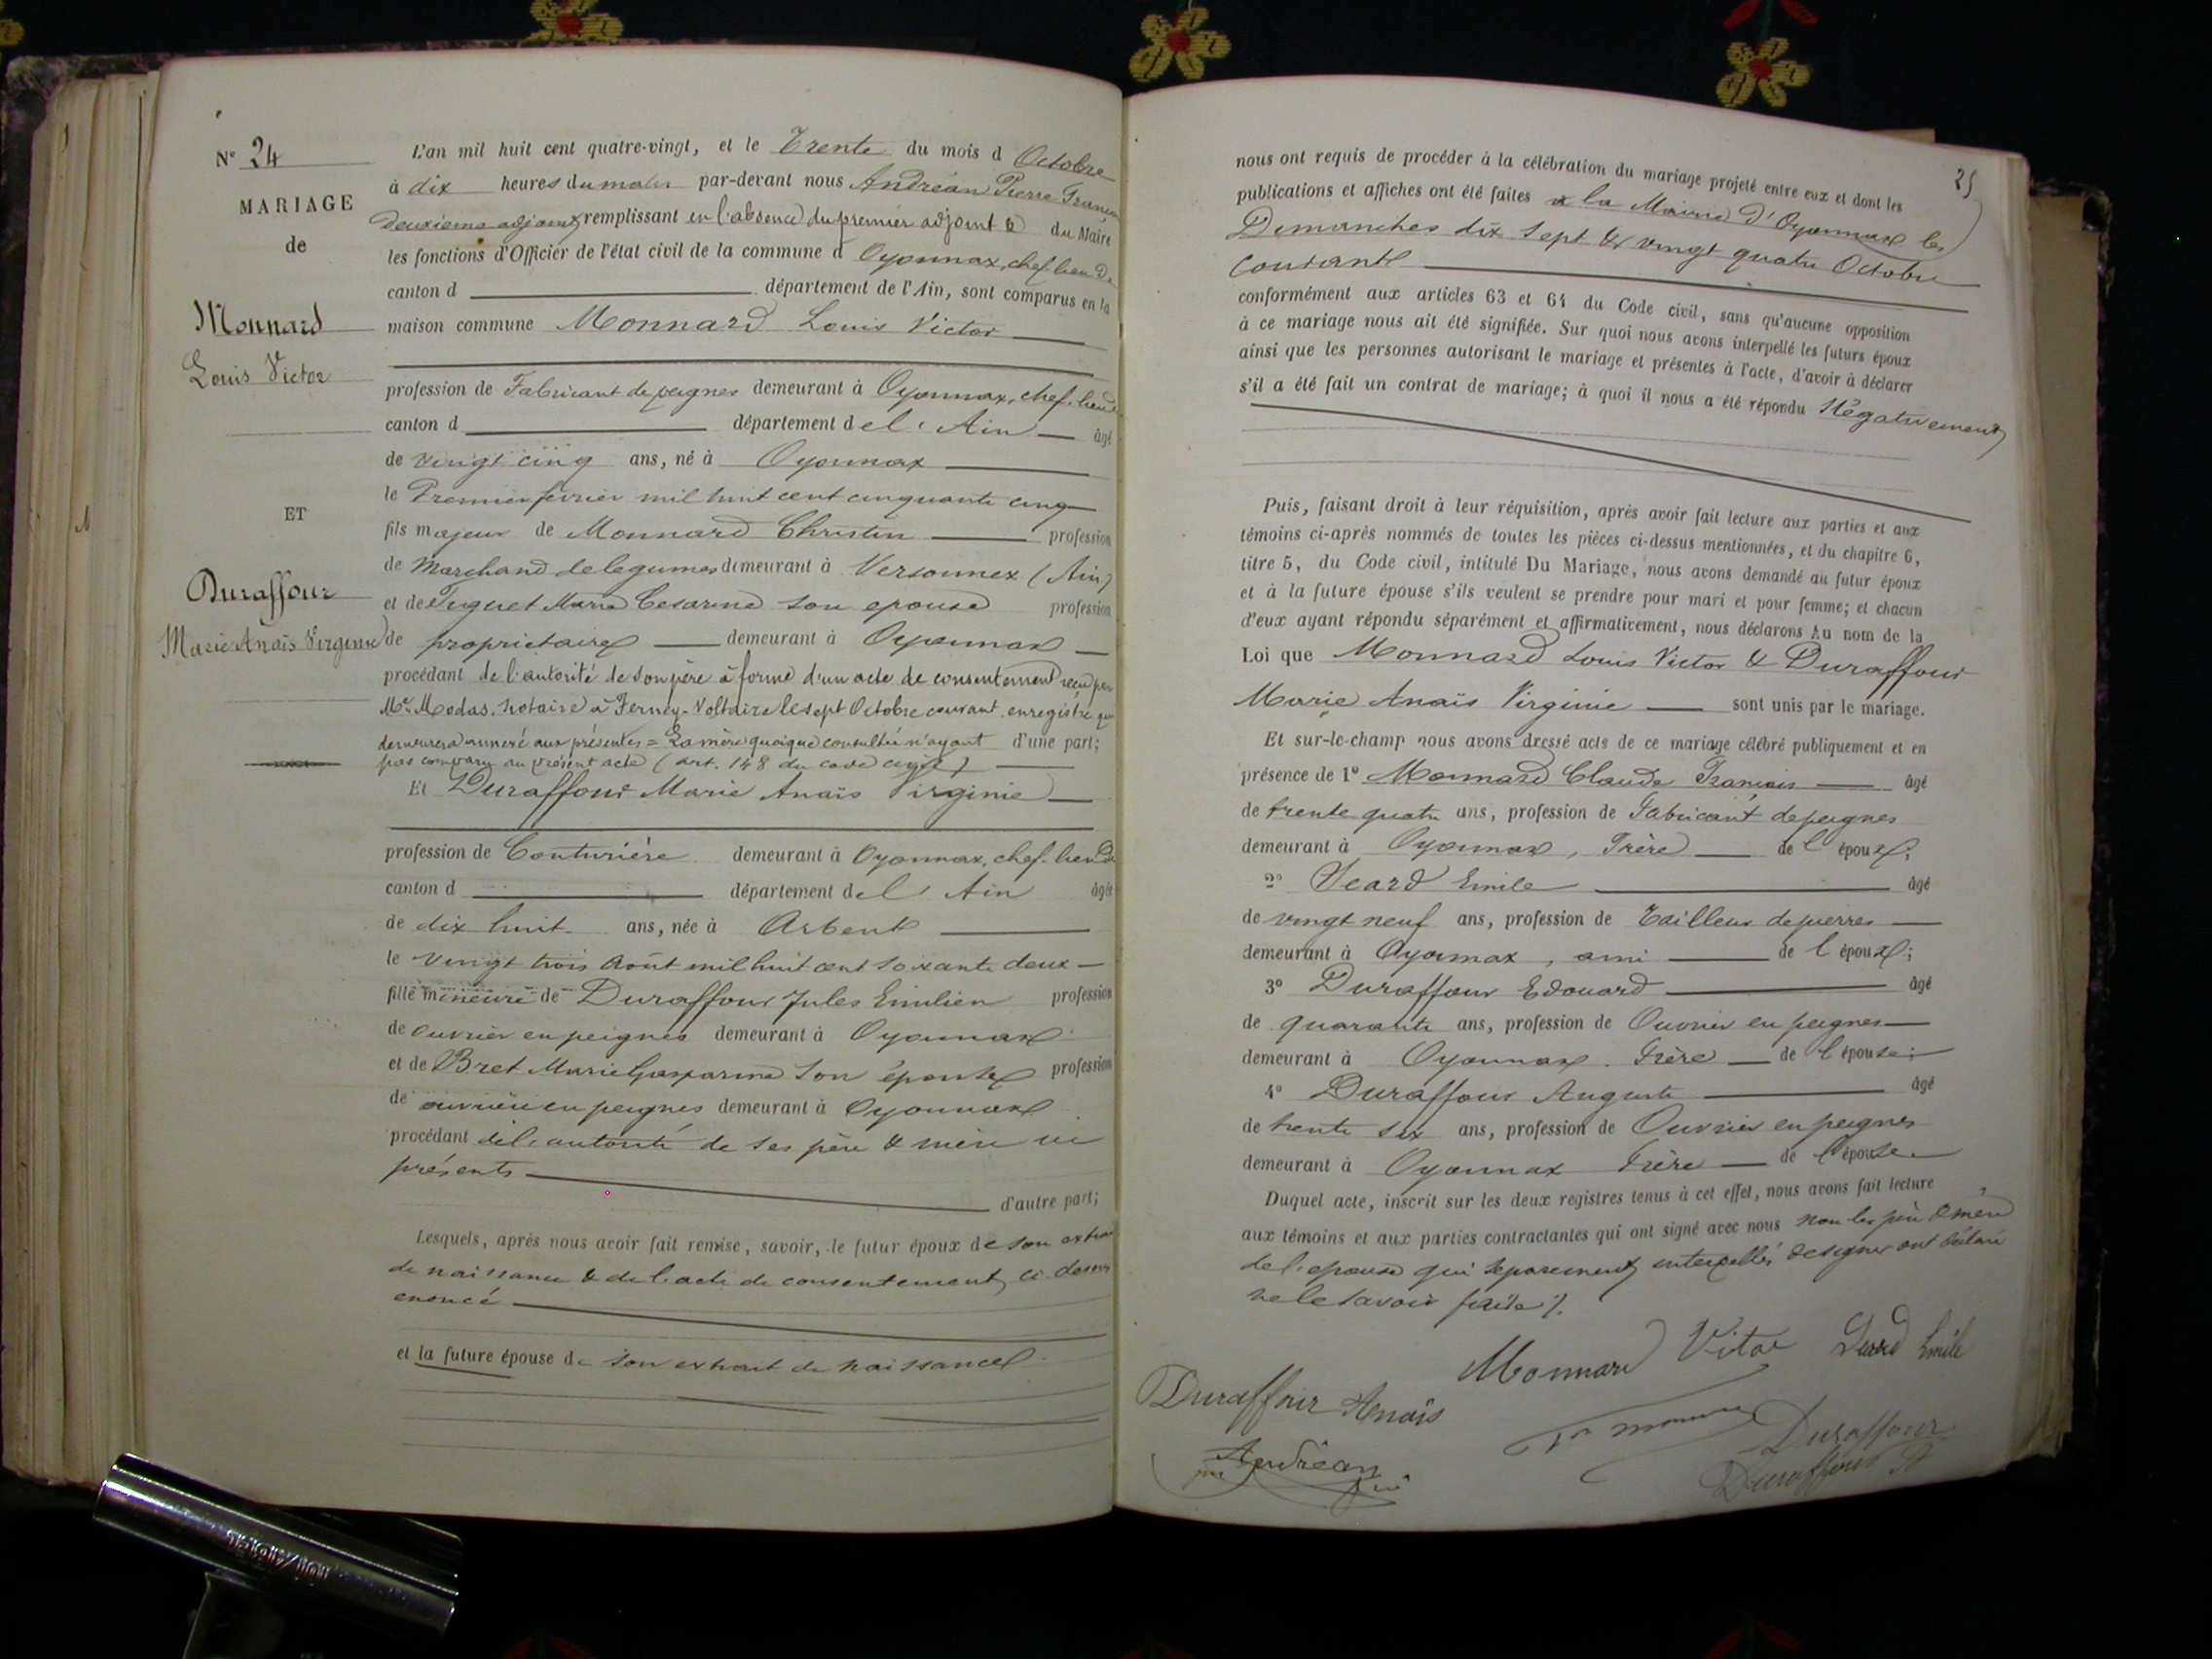 N° 24
MARIAGE
de
Monnard
Louis Victor
ET
Duraffour
Marie Anaïs Virginie
L'an mil huit cent quatre-vingt, et le Trente du mois d Octobre
à dix heures du matin par-devant nous Andréan Pierre
deuxième adjoint remplissant en l'absence du premier adjoint & du Maire
les fonctions d'Officier de l'état civil de la commune d Oyonnax, chef lieu de
canton d département de l'Ain, sont comparus en la
maison commune Monnard Louis Victor
profession de Fabricant de peignes demeurant à Oyonnax, chef-lieu de
canton d département de l'Ain âgé
de vingt cinq ans, né à Oyonnax
le Premier février mil huit cent cinquante cinq
fils majeur de Monnard Christin profession
de Marchand de legumes demeurant à Versonnex (Ain)
et de Tuguet Marie Cesarine son epouse profession
de propriétaire demeurant à Oyonnax
procédant de l'autorité de son père à forme d'un acte de consentement reçu par
Me Modas, notaire à Ferney-Voltaire le sept Octobre courant, enregistré qui
demeurera annexé aux présentes = La mère quoique consultée n'ayant d'une part;
pas comparu au présent acte (art. 148 du code civil)
Et Duraffour Marie Anaïs Virginie
profession de Couturière demeurant à Oyonnax, chef-lieu de
canton d département de l'Ain âgée
de dix huit ans, née à Arbent
le vingt trois Août mil huit cent soixante deux
fille mineure de Duraffour Jules Emilien profession
de ouvrier en peignes demeurant à Oyonnax
et de Bret Marie Gasparine son épouse profession
de ouvrière en peignes demeurant à Oyonnax
procédant de l'autorité de ses père & mère ici
présents
d'autre part;
Lesquels, après nous avoir fait remise, savoir, le futur époux de son extrait
de naissance & de l'acte de consentement ci-dessus
enoncé
et la future épouse de son extrait de naissance
25
nous ont requis de procéder à la célébration du mariage projeté entre eux et dont les
publications et affiches ont été faites à la Mairie d'Oyonnax les
Dimanches dix sept & vingt quatre Octobre
courant
conformément aux articles 63 et 64 du Code civil, sans qu'aucune opposition
à ce mariage nous ait été signifiée. Sur quoi nous avons interpellé les futurs époux
ainsi que les personnes autorisant le mariage et présentes à l'acte, d'avoir à déclarer
s'il a été fait un contrat de mariage; à quoi il nous a été répondu Négativement
Puis, faisant droit à leur réquisition, après avoir fait lecture aux parties et aux
témoins ci-après nommés de toutes les pièces ci-dessus mentionnées, et du chapitre 6,
titre 5, du Code civil, intitulé Du Mariage, nous avons demandé au futur époux
et à la future épouse s'ils veulent se prendre pour mari et pour femme; et chacun
d'eux ayant répondu séparément et affirmativement, nous déclarons Au nom de la
Loi que Monnard Louis Victor & Duraffour
Marie Anaïs Virginie sont unis par le mariage.
Et sur-le-champ nous avons dressé acte de ce mariage célébré publiquement et en
présence de 1° Monnard Claude François âgé
de trente quatre ans, profession de Fabricant de peignes
demeurant à Oyonnax, Frère de l'époux;
2° Seard Emile âgé
de vingt neuf ans, profession de Tailleur de pierres
demeurant à Oyonnax, ami de l'époux;
3° Duraffour Edouard âgé
de quarante ans, profession de Ouvrier en peignes
demeurant à Oyonnax. Frère de l'épouse;
4° Duraffour Auguste âgé
de trente six ans, profession de Ouvrier en peignes
demeurant à Oyonnax Frère de l'épouse
Duquel acte, inscrit sur les deux registres tenus à cet effet, nous avons fait lecture
aux témoins et aux parties contractantes qui ont signé avec nous non les père & mère
de l'épouse qui séparement interpellés de signer ont déclaré
ne le savoir faire /.
Monnard Vitor
Seard Emile
Duraffour Anaïs
Duraffour
Andréan
Duraffour A